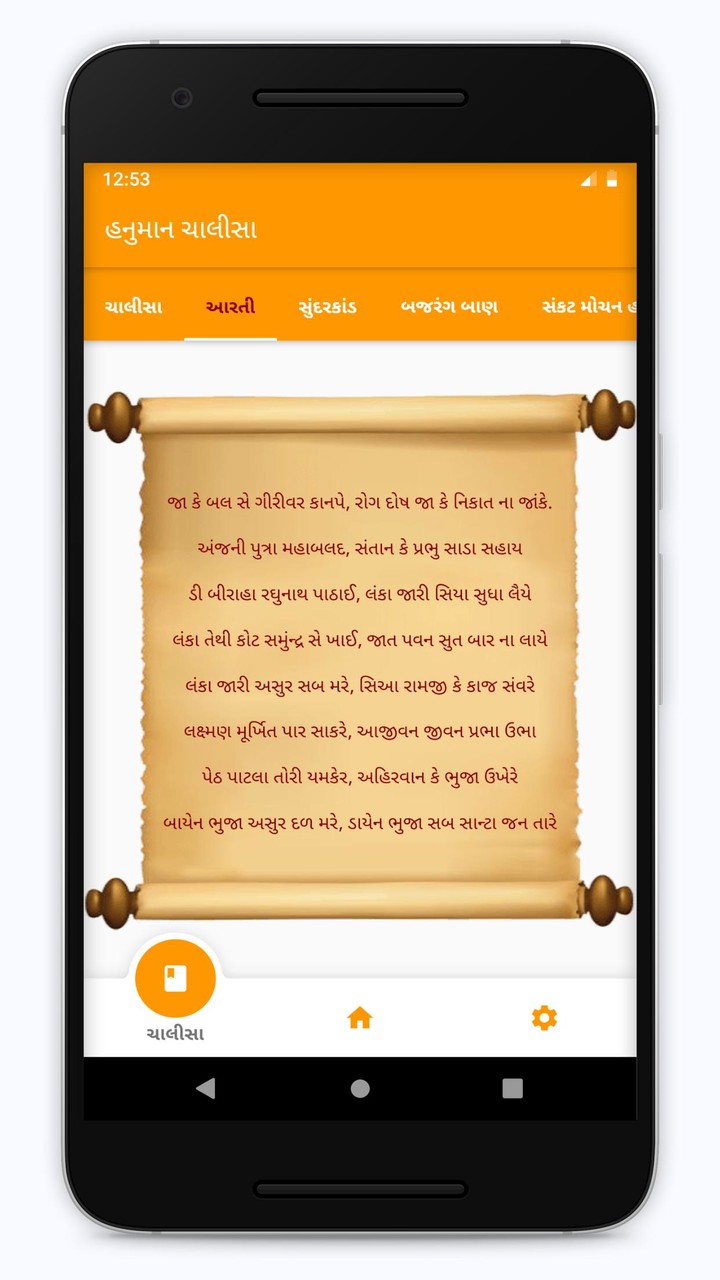 12:53
હનુમાન ચાલીસા
ચાલીસા આરતી સુંદરકાંડ બજરંગ બાણ સંકટ મોચન હ
જા કે બલ સે ગીરીવર કાનપે, રોગ દોષ જા કે નિકાત ના જાંકે.
અંજની પુત્રા મહાબલદ, સંતાન કે પ્રભુ સાડા સહાય
ડી બીરાહા રઘુનાથ પાઠાઈ, લંકા જારી સિયા સુધા લૈયે
લંકા તેથી કોટ સમુંન્દ્ર સે ખાઈ, જાત પવન સુત બાર ના લાયે
લંકા જારી અસુર સબ મરે, સિઆ રામજી કે કાજ સંવરે
લક્ષ્મણ મૂર્ખિત પાર સાકરે, આજીવન જીવન પ્રભા ઉભા
પેઠ પાટલા તોરી યમકેર, અહિરવાન કે ભુજા ઉખેરે
બાયેન ભુજા અસુર દળ મરે, ડાયેન ભુજા સબ સાન્ટા જન તારે
ચાલીસા